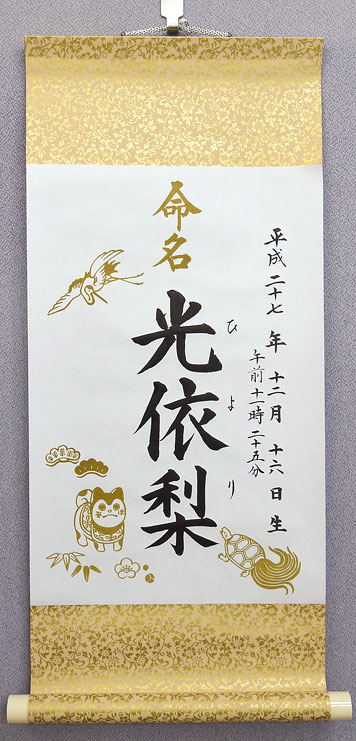 平成二十七年十二月十六日生
午前十一時二十五分
ひより
光依梨
命名